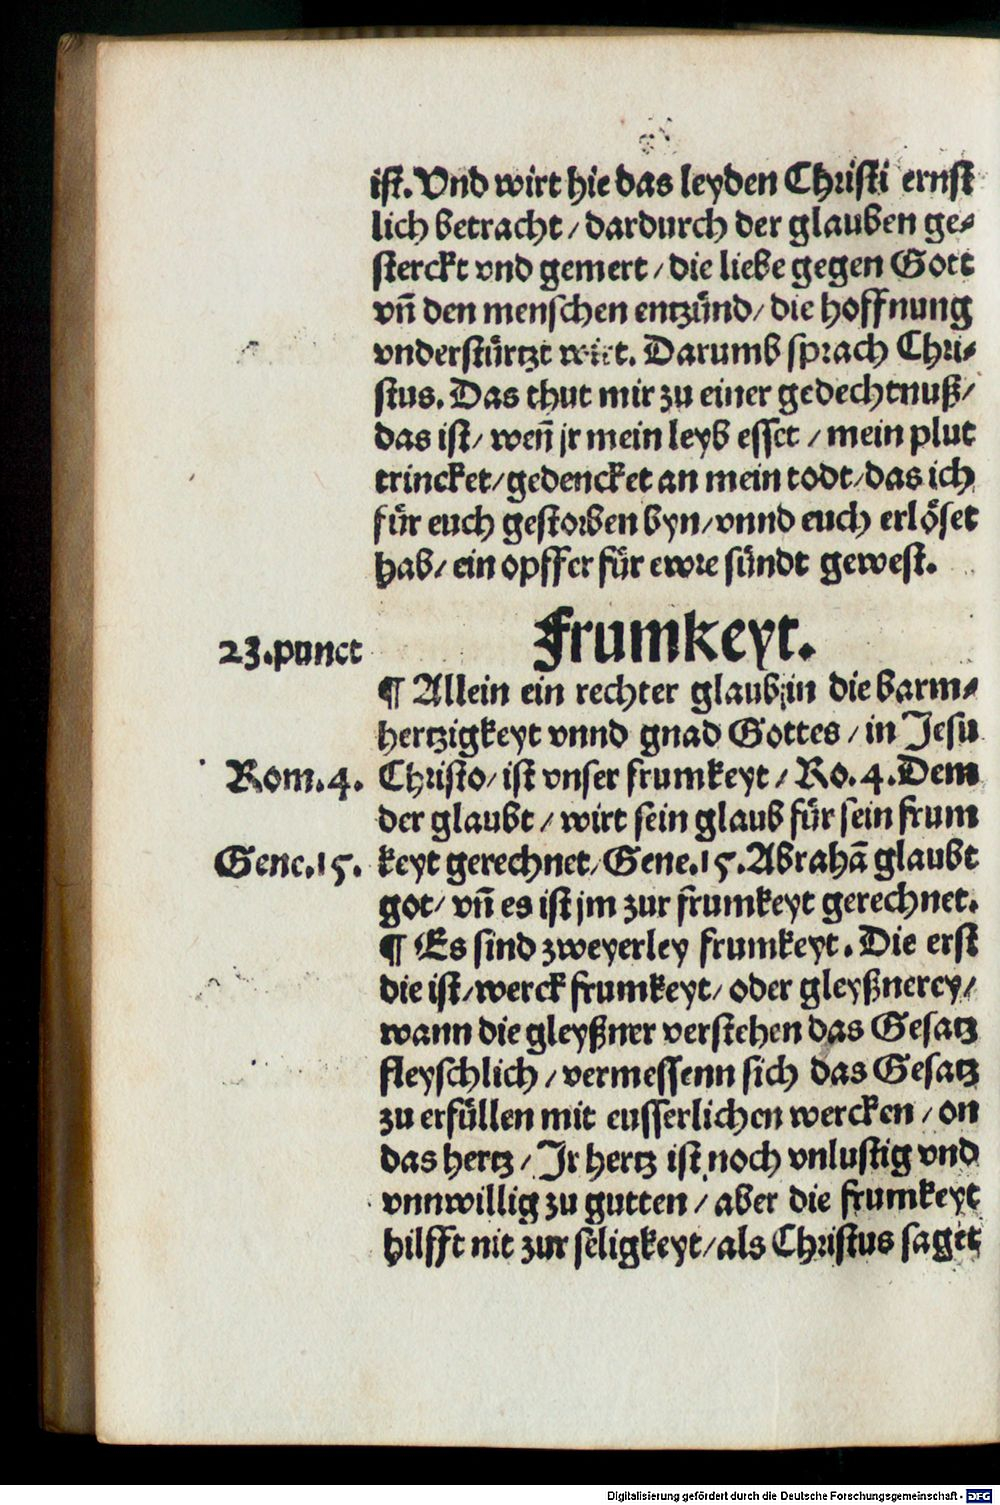 ist. Vnd wirt hie das leyden Christi ernst
lich betracht / dardurch der glauben ge⸗
sterckt vnd gemert / die liebe gegen Gott
vñ den menschen entzünd / die hoffnung
vnderstürtzt wirt. Darumb sprach Chri⸗
stus. Das thut mir zu einer gedechtnuß /
das ist / weñ jr mein leyb esset / mein plut
trincket / gedencket an mein todt / das ich
für euch gestorben byn / vnnd euch erlöset
hab / ein opffer für ewre sündt gewest.
23. punct
Frumkeyt.
¶ Allein ein rechter glaub in die barm⸗
hertzigkeyt vnnd gnad Gottes / in Jesu
Rom. 4.
Christo / ist vnser frumkeyt / Ro. 4. Dem
der glaubt / wirt sein glaub für sein frum
Gene. 15.
keyt gerechnet / Gene. 15. Abrahã glaubt
got / vñ es ist jm zur frumkeyt gerechnet.
¶ Es sind zweyerley frumkeyt. Die erst
die ist / werck frumkeyt / oder gleyßnerey /
wann die gleyßner verstehen das Gesatz
fleyschlich / vermessenn sich das Gesatz
zu erfüllen mit eusserlichen wercken / on
das hertz / Jr hertz ist noch vnlustig vnd
vnnwillig zu gutten / aber die frumkeyt
hilfft nit zur seligkeyt / als Christus saget
Digitalisierung gefördert durch die Deutsche Forschungsgemeinschaft - DFG